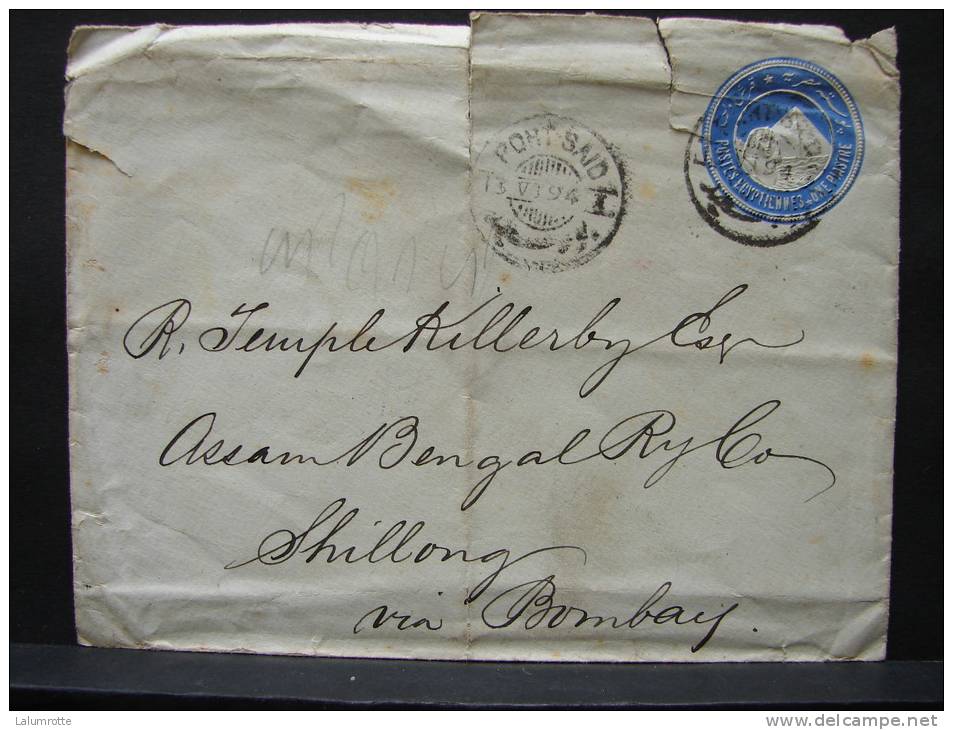 PORT SAID
13 VI 94
بوسته مصرية
POSTES EGYPTIENNES ONE PIASTRE
R. Temple Killerby Esqr
Assam Bengal Ry Co
Shillong
via Bombay.
Lalumrotte
www.delcampe.net